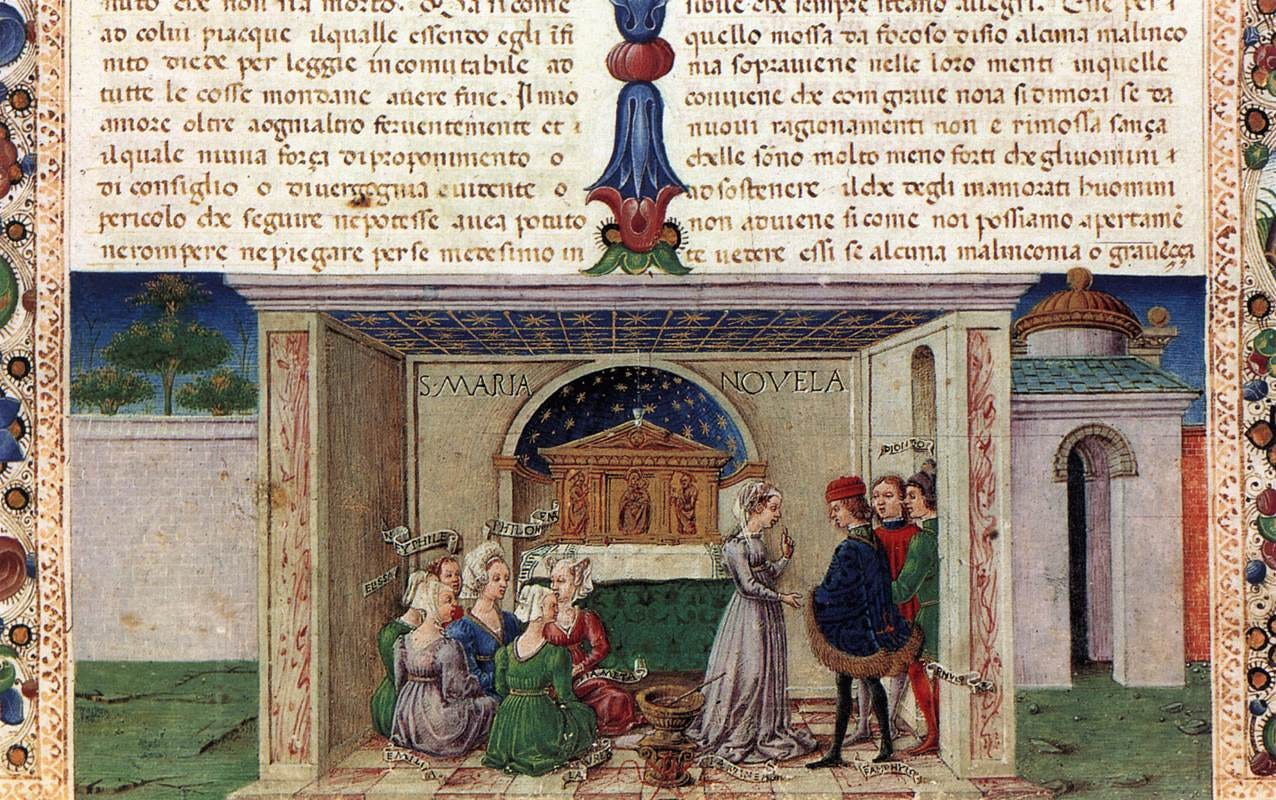 ad colui piacque ilqualle essendo egli ĩfi
nito diede per leggie incomutabile ad
tutte le cosse mondane avere fine. Il mio
amore oltre aogniàltro ferventemente et
ilquale niuna força di proponimento o
di consiglio o di vergogna evidente o
pericolo che seguire ne potesse avea potuto
ne rompere ne piegare per se medesimo in
quello mossa da focoso disio alcuna malinco
nia sopraviene nelle loro menti in quelle
conviene che com grave noia si dimori se da
nuovi ragionamenti non e rimossa sança
chelle sono molto meno forti che gliuomini
ad sostenere ilche degli inamorati huomini
non adviene si come noi possiamo apertamẽ
te vedere essi se alcuna malinconia o graveçça
S·MARIA NOVELA
DIONEO
PHILOM
ENA
NYPHILE
ELISSA
EMILIA
PAMPHYLO